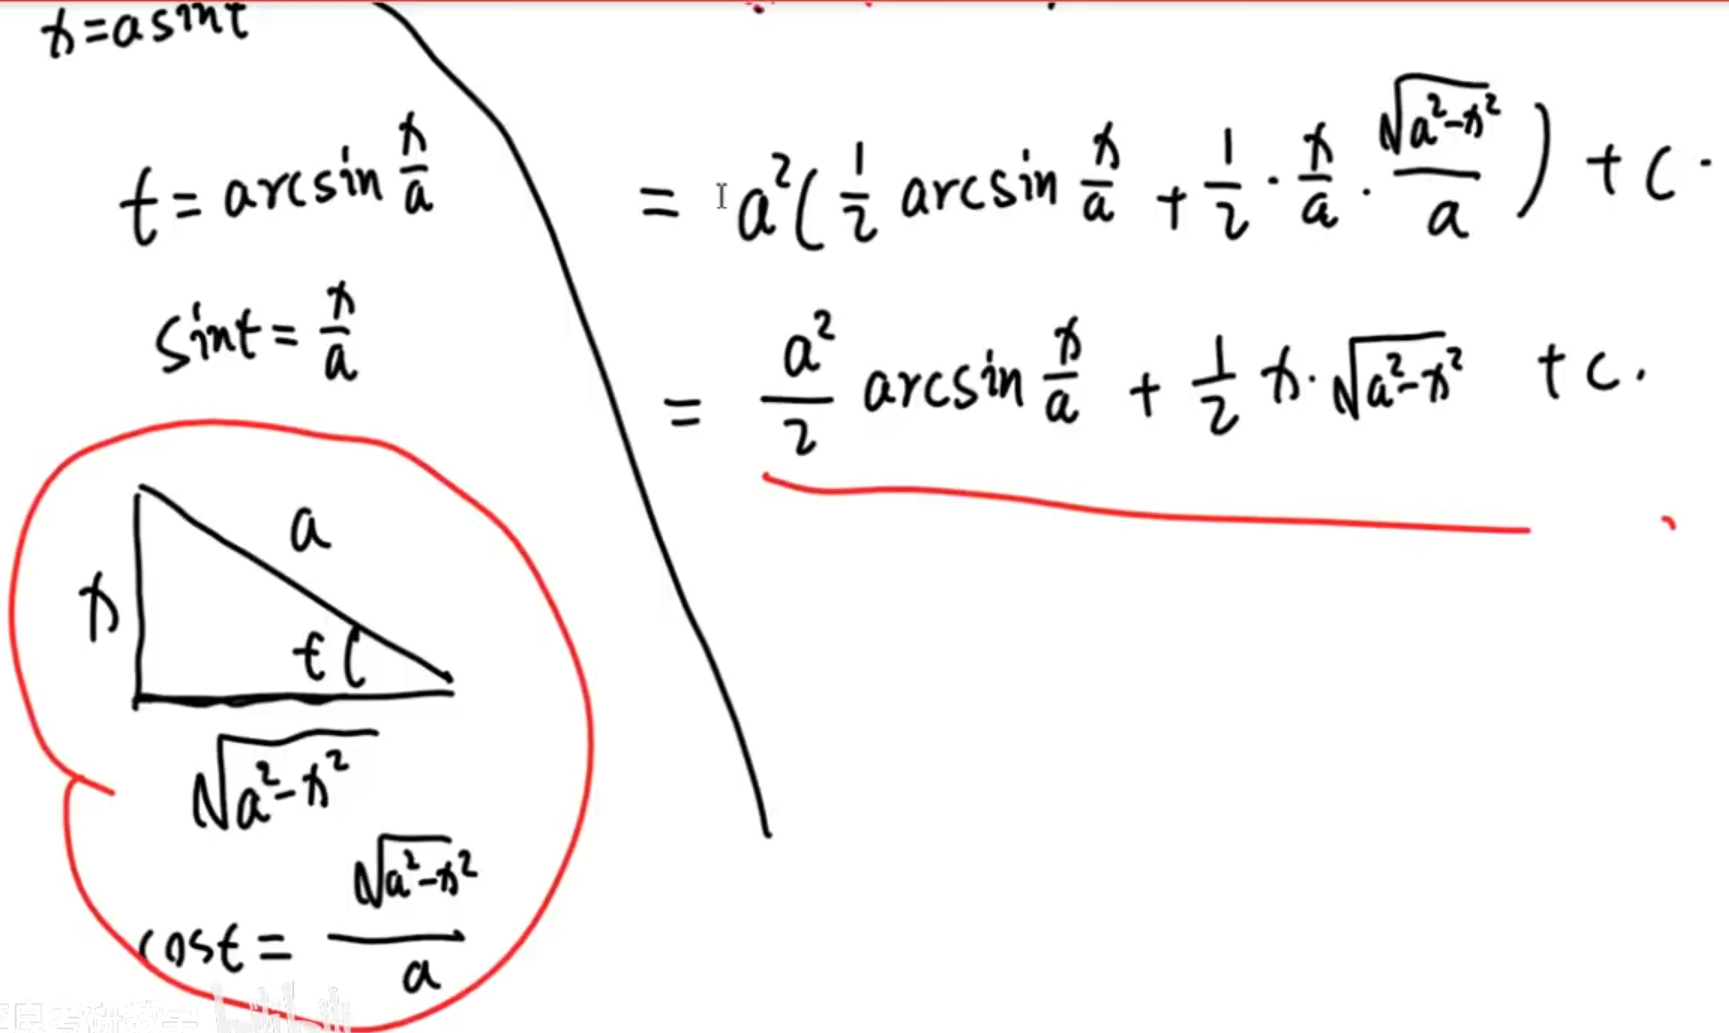 x=asint
t = arcsin x/a
sint = x/a
a
x
t
√(a²-x²)
cost = √(a²-x²)/a
= a²(1/2 arcsin x/a + 1/2 · x/a · √(a²-x²)/a) + C.
= a²/2 arcsin x/a + 1/2 x · √(a²-x²) + C.
考研数学